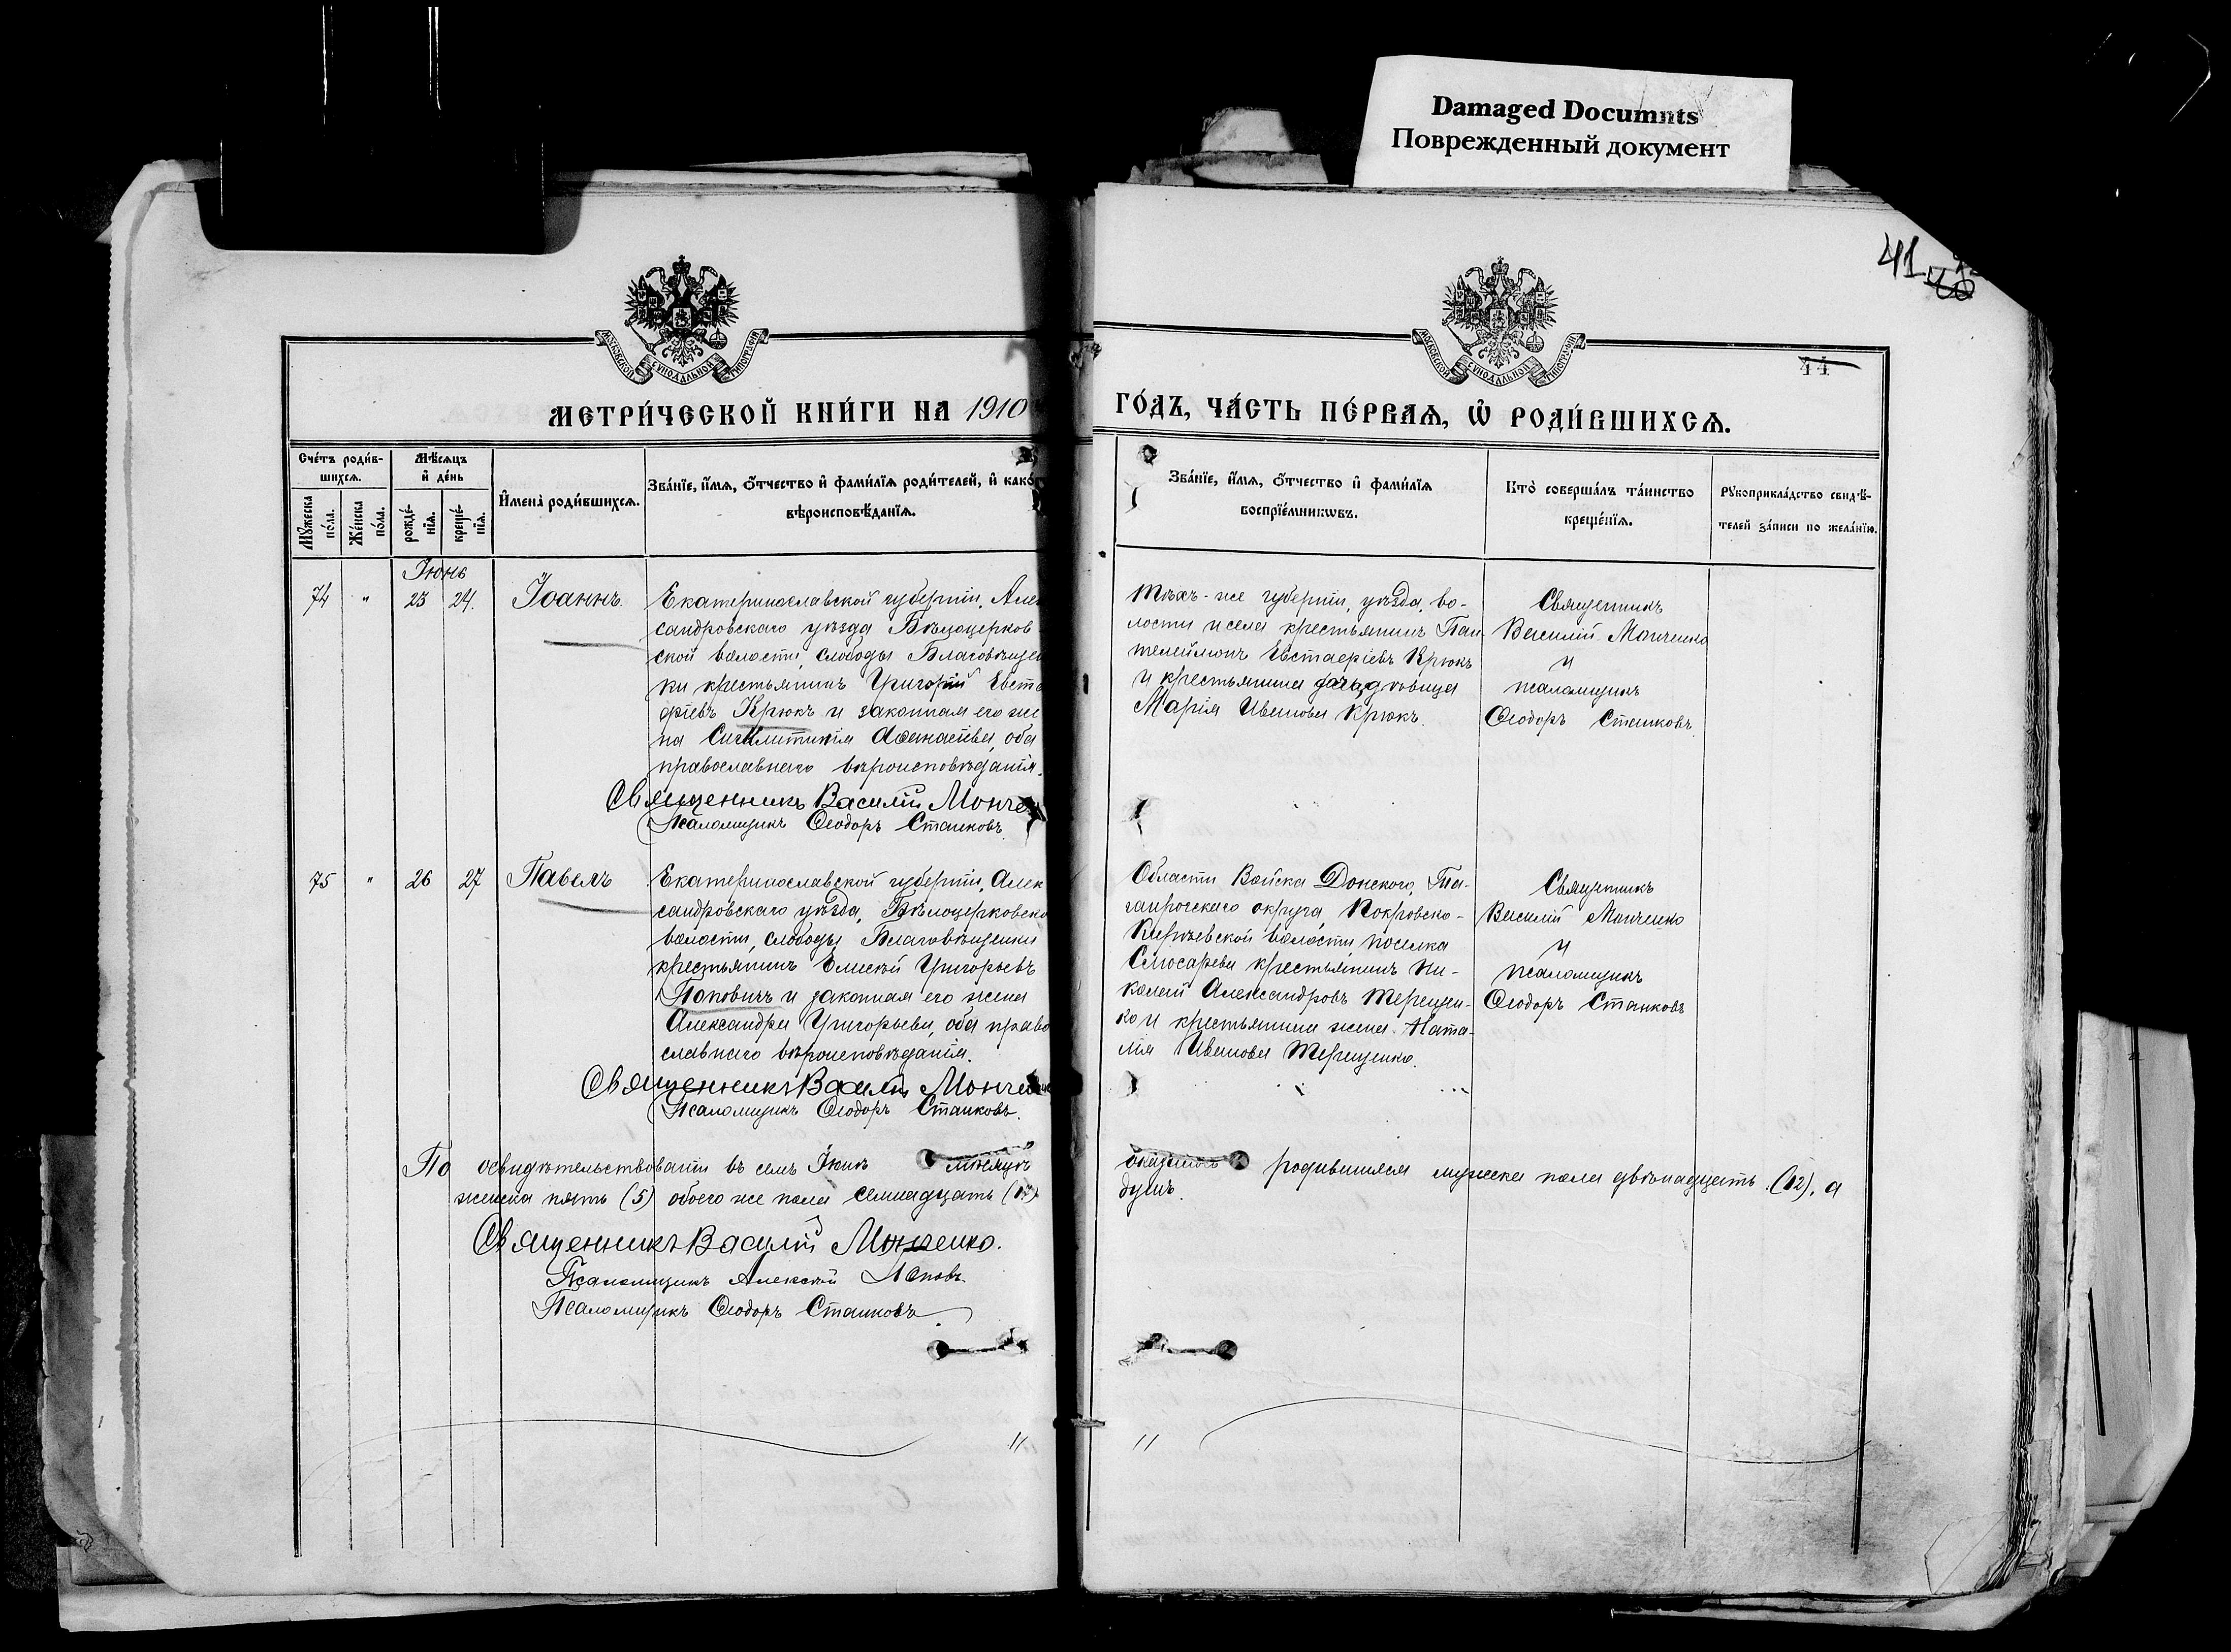 Damaged Documnts
Поврежденный документ
41
МОСКОВСКОЙ СУНОДАЛЬНОЙ ТИПОГРАФІИ
МОСКОВСКОЙ СУНОДАЛЬНОЙ ТИПОГРАФІИ
44
МЕТРИ́ЧЕСКОЙ КНИ́ГИ НА 1910
ГО́ДЪ, ЧА́СТЬ ПЕ́РВАѦ, Ѽ РОДИ́ВШИХСѦ.
Сче́тъ роди́в-
шихсѧ.
Мꙋжеска по́ла.
Же́нска по́ла.
Мѣ́сѧцъ
и҆ де́нь
рожде́-
нїѧ.
креще́-
нїѧ.
И҆мена̀ роди́вшихсѧ.
Зва́нїе, и҆́мѧ, ѻ҆́тчество и҆ фами́лїѧ роди́телей, и҆ како́
вѣроисповѣ́данїѧ.
Зва́нїе, и҆́мѧ, ѻ҆́тчество и҆ фами́лїѧ
воспрїе́мникѡвъ.
Кто̀ соверша́лъ та́инство
креще́нїѧ.
Рꙋкоприкла́дство свидѣ́-
телей за́писи по жела́нїю.
Іюнь
74 " 23 24. Іоаннъ.
Екатеринославской губерніи, Алек
сандровскаго уѣзда Бѣлоцерков-
ской волости, слободы Благовѣщен
ки крестьянинъ Григорій Евста
фіевъ Крюкъ и законная его же
на Сигклитикія Аѳанасіева, оба
православнаго вѣроисповѣданія.
Священникъ Василій Монче
Псаломщикъ Ѳеодоръ Станковъ.
Тѣхъ-же губерніи, уѣзда, во-
лости и села крестьянинъ Пан-
телеймонъ Евстафіевъ Крюкъ
и крестьянина
Марія Иванова Крюкъ.
Священникъ
Василій Монченко
и
псаломщикъ
Ѳеодоръ Станковъ.
75 " 26 27 Павелъ
Екатеринославской губерніи, Алек
сандровскаго уѣзда, Бѣлоцерковско
волости, слободы Благовѣщенки
крестьянинъ Елисей Григорьевъ
Поповичъ и законная его жена
Александра Григорьева, оба право
славнаго вѣроисповѣданія.
Священникъ Василій Монченко
Псаломщикъ Ѳеодоръ Станковъ.
Области Войска Донского, Та-
ганрогскаго округа, Покровско-
Киреевской волости поселка
Слюсарева крестьянинъ Ни-
колай Александровъ Терещен-
ко и крестьянина жена Ната-
лія Иванова Терещенко.
Священникъ
Василій Монченко
и
псаломщикъ
Ѳеодоръ Станковъ
По освидѣтельствованіи въ семъ Іюнѣ мѣсяцѣ оказалось родившихся мужска пола двѣнадцать (12), а
женска пять (5) обоего же пола семнадцать (17) душъ.
Священникъ Василій Монченко.
Псаломщикъ Алексѣй Поповъ.
Псаломщикъ Ѳеодоръ Станковъ.